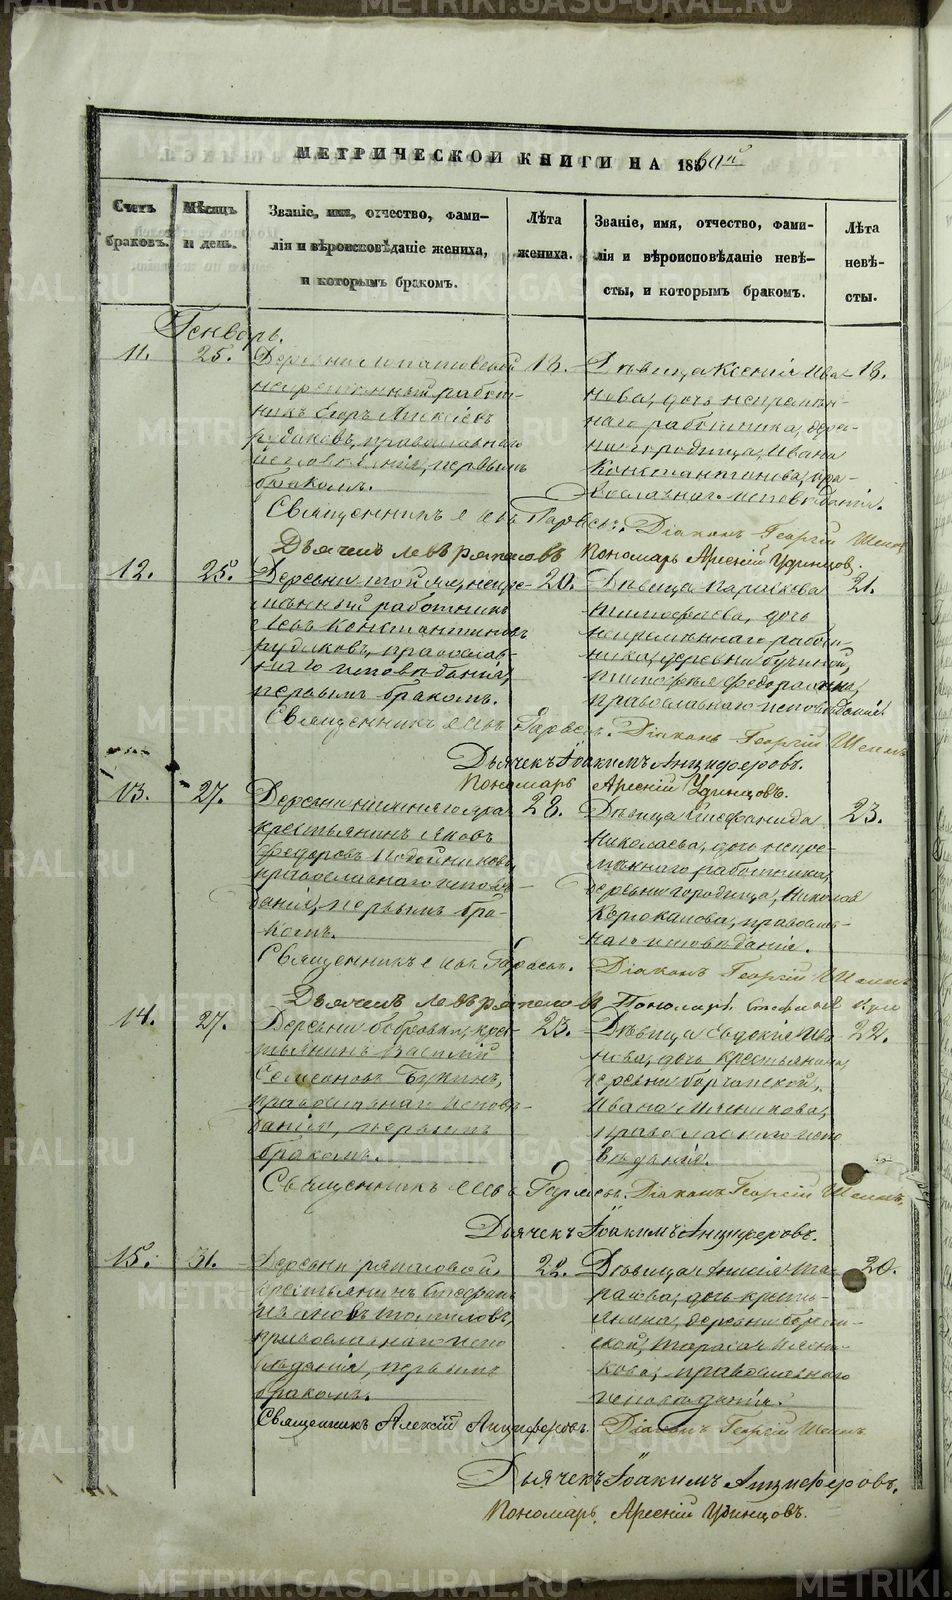 МЕТРИЧЕСКОЙ КНИГИ НА 1860й
Счетъ браковъ.
Мѣсяцъ и день.
Званіе, имя, отчество, фами-
лія и вѣроисповѣданіе жениха,
и которымъ бракомъ.
Лѣта
жениха.
Званіе, имя, отчество, фами-
лія и вѣроисповѣданіе невѣ-
сты, и которымъ бракомъ.
Лѣта
невѣ-
сты.
Генварь.
11. 25.
Деревни
непремѣнный работ-
никъ Алексѣевъ
православнаго
исповѣданія, первымъ
бракомъ.
18.
Дѣвица Ксенія Ива-
нова, дочь непремѣн-
наго работника, дере-
вни Городища, Ивана
Константинова, пра-
вославнаго исповѣданія.
18.
Священникъ Діаконъ Георгій
Дьячекъ Левъ Пономарь Арсеній Удинцовъ.
12. 25.
Деревни той же, непре-
мѣнный работникъ
Левъ Константиновъ
Рудаковъ, православ-
наго исповѣданія,
первымъ бракомъ.
20.
Дѣвица Параскева
Тимофеева, дочь
непремѣннаго работ-
ника, деревни
Тимофея
православнаго исповѣданія.
21.
Священникъ Діаконъ Георгій
Дьячекъ Іоакимъ Анциферовъ.
Пономарь Арсеній Удинцовъ.
13. 27.
Деревни
крестьянинъ Яковъ
Федоровъ
православнаго исповѣ-
данія, первымъ бра-
комъ.
28.
Дѣвица Стефанида
Николаева, дочь непре-
мѣннаго работника,
деревни Городища, Николая
православ-
наго исповѣданія.
23.
Священникъ Діаконъ Георгій
Дьячекъ Левъ Пономарь
14. 27.
Деревни Бобровки, крес-
тьянинъ Василій
Семеновъ Букинъ,
православнаго исповѣ-
данія, первымъ
бракомъ.
23.
Дѣвица Евдокія Ива-
нова, дочь крестьянина,
деревни
Ивана Мясникова,
православнаго испо-
вѣданія.
22.
Священникъ Діаконъ Георгій
Дьячекъ Іоакимъ Анциферовъ.
15. 31.
Деревни
крестьянинъ Стефанъ
Ивановъ Томиловъ,
православнаго испо-
вѣданія, первымъ
бракомъ.
22.
Дѣвица Анисія Та-
расова, дочь кресть-
янина, деревни
Тараса Мясни-
кова, православнаго
исповѣданія.
20.
Священникъ Алексій Анциферовъ. Діаконъ Георгій
Дьячекъ Іоакимъ Анциферовъ.
Пономарь Арсеній Удинцовъ.
METRIKI.GASO-URAL.RU